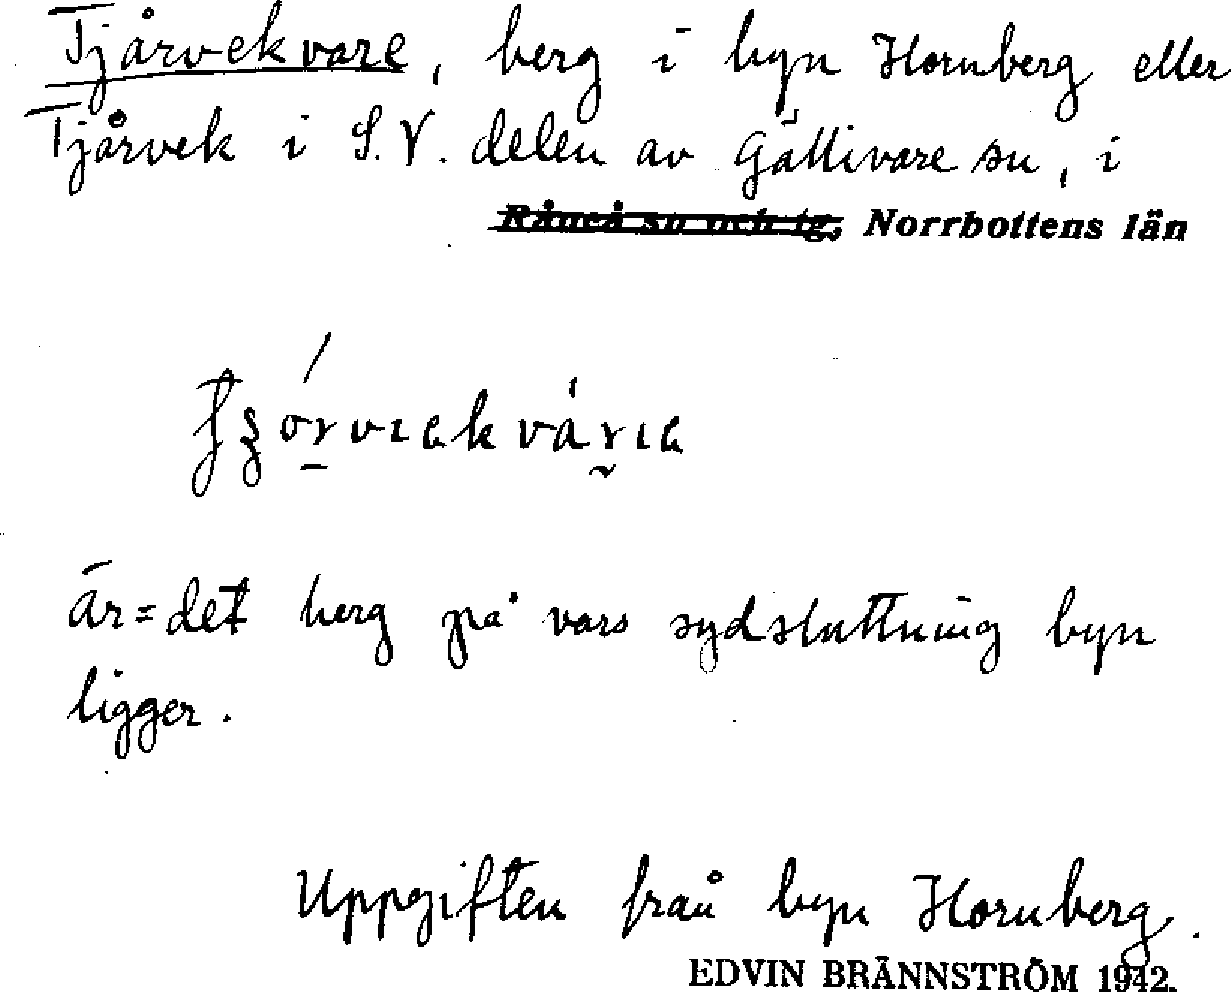 Tjårvekvare, berg i byn Hornberg eller
Tjårvek i S.V. delen av Gällivare sn, i
Råneå sn och tg, Norrbottens län
är=det berg på vars sydsluttning byn
ligger.
Uppgiften från byn Hornberg.
EDVIN BRÄNNSTRÖM 1942.